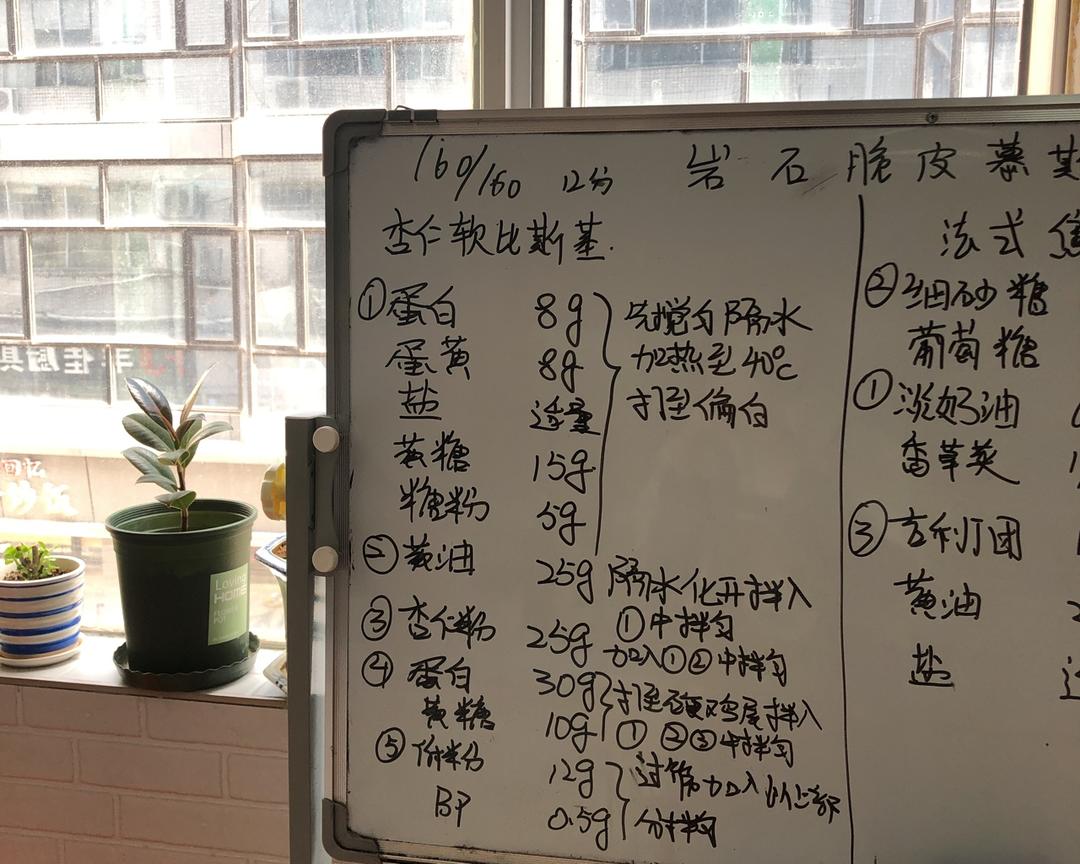 160/160 12分 岩石脆皮慕斯
杏仁软比斯基.
①蛋白 8g 先搅匀隔水
蛋黄 8g 加热至40℃
盐 适量 打至偏白
黄糖 15g
糖粉 5g
②黄油 25g 隔水化开拌入
①中拌匀
③杏仁粉 25g 加入①②中拌匀
④蛋白 30g 打至硬鸡尾拌入
黄糖 10g ①②③中拌匀
⑤ 12g 过筛加入以上部
BP 0.5g 分拌匀
法式
②细砂糖
葡萄糖
①淡奶油
香草荚
③吉利丁团
黄油
盐
佳厨具
Loving
HOME